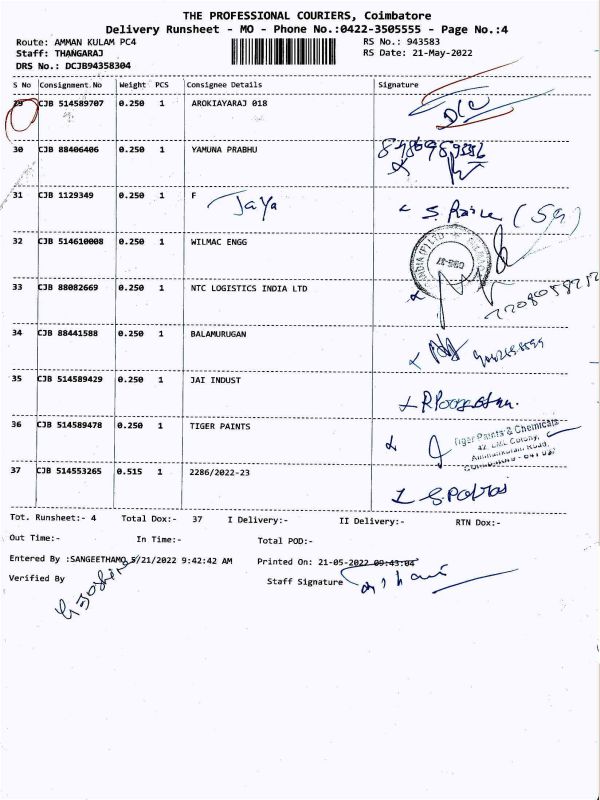 THE PROFESSIONAL COURIERS, Coimbatore
Delivery Runsheet - MO - Phone No.:0422-3505555 - Page No.:4
Route: AMMAN KULAM PC4 RS No.: 943583
Staff: THANGARAJ RS Date: 21-May-2022
DRS No.: DCJB94358304
S No Consignment.No Weight PCS Consignee Details Signature
29 CJB 514589707 0.250 1 AROKIAYARAJ 018 D/C
30 CJB 88406406 0.250 1 YAMUNA PRABHU
31 CJB 1129349 0.250 1 F Jaya
32 CJB 514610008 0.250 1 WILMAC ENGG
33 CJB 88082669 0.250 1 NTC LOGISTICS INDIA LTD
34 CJB 88441588 0.250 1 BALAMURUGAN
35 CJB 514589429 0.250 1 JAI INDUST
36 CJB 514589478 0.250 1 TIGER PAINTS
Tiger Paints & Chemicals
42, LML Colony,
Ammankulam Road,
37 CJB 514553265 0.515 1 2286/2022-23
Tot. Runsheet:- 4 Total Dox:- 37 I Delivery:- II Delivery:- RTN Dox:-
Out Time:- In Time:- Total POD:-
Entered By :SANGEETHAMO 5/21/2022 9:42:42 AM Printed On: 21-05-2022 09:43:04
Verified By Staff Signature